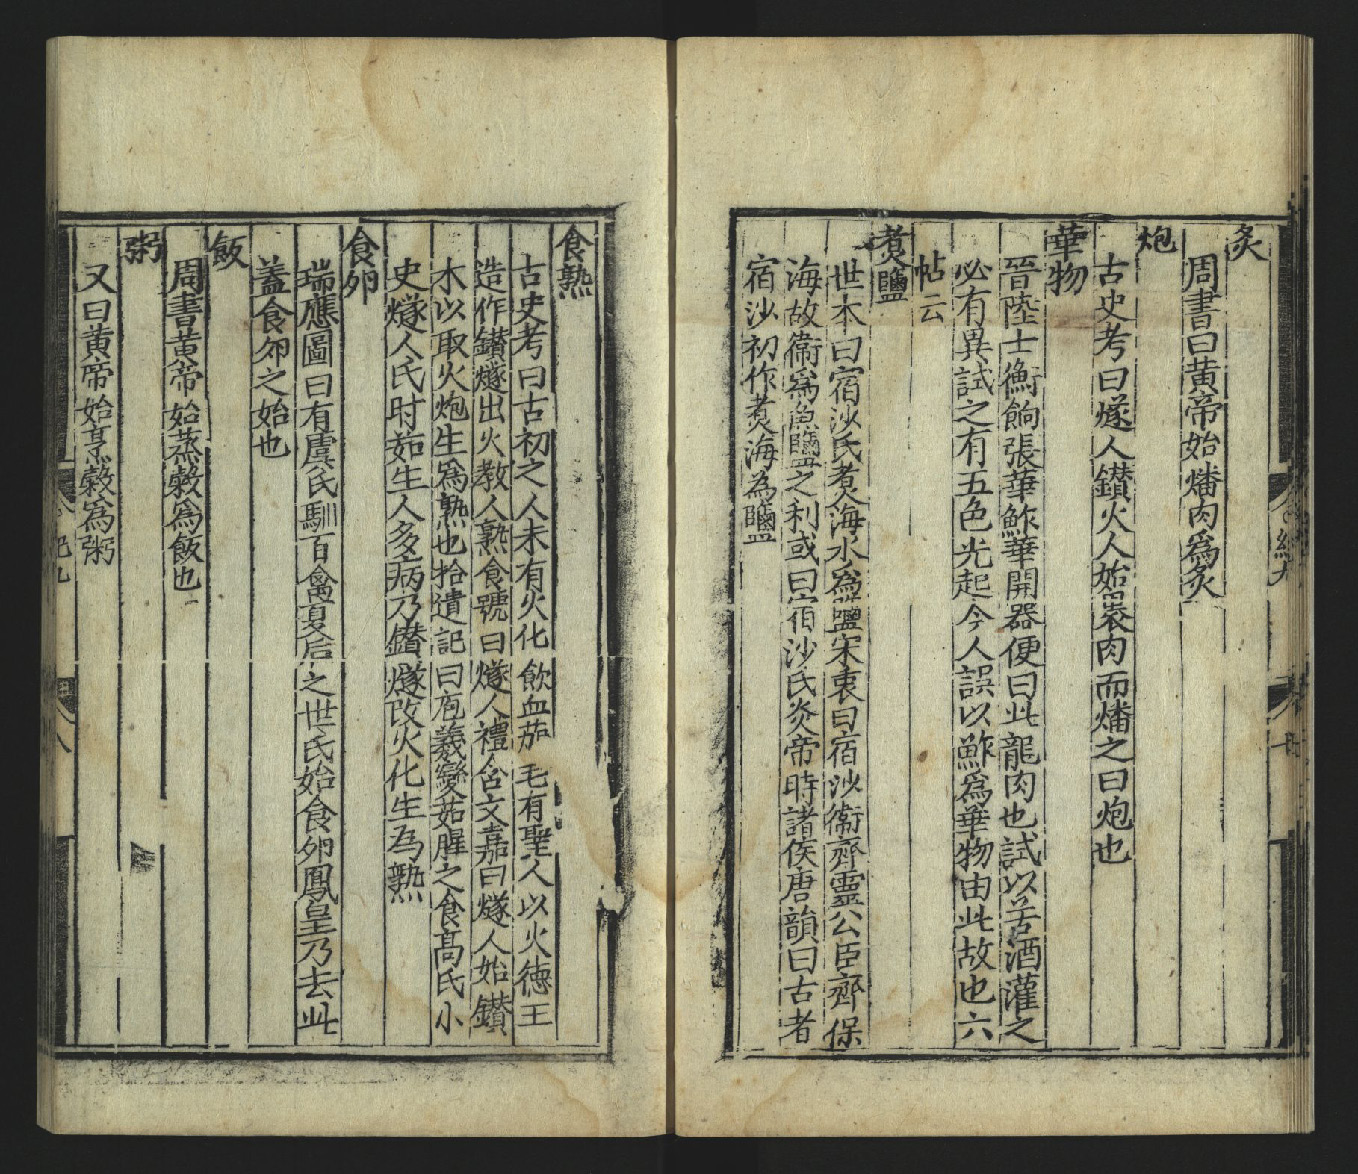 炙
周書曰黃帝始燔肉爲炙
炮
古史考曰燧人鑚火人始裹肉而燔之曰炮也
華物
晉陸士衡餉張華鮓華開器便曰此龍肉也試以苦酒灌之
必有異試之有五色光起今人誤以鮓爲華物由此故也六
帖云
煑鹽
世本曰宿沙氏煑海水爲鹽宋衷曰宿沙衞齊靈公臣齊保
海故衞爲魚鹽之利或曰宿沙氏炎帝時諸侯唐韻曰古者
宿沙初作煑海為鹽
食熟
古史考曰古初之人未有火化飲血茹毛有聖人以火德王
造作鑚燧出火教人熟食號曰燧人禮含文嘉曰燧人始鑚
木以取火炮生爲熟也拾遺記曰庖羲變茹腥之食高氏小
史燧人氏时茹生人多病乃鑚燧改火化生为熟
食卵
瑞應圖曰有虞氏馴百禽夏后之世氏始食卵鳳皇乃去此
蓋食卵之始也
飯
周書黄帝始蒸榖爲飯也
粥
又曰黄帝始烹榖爲粥